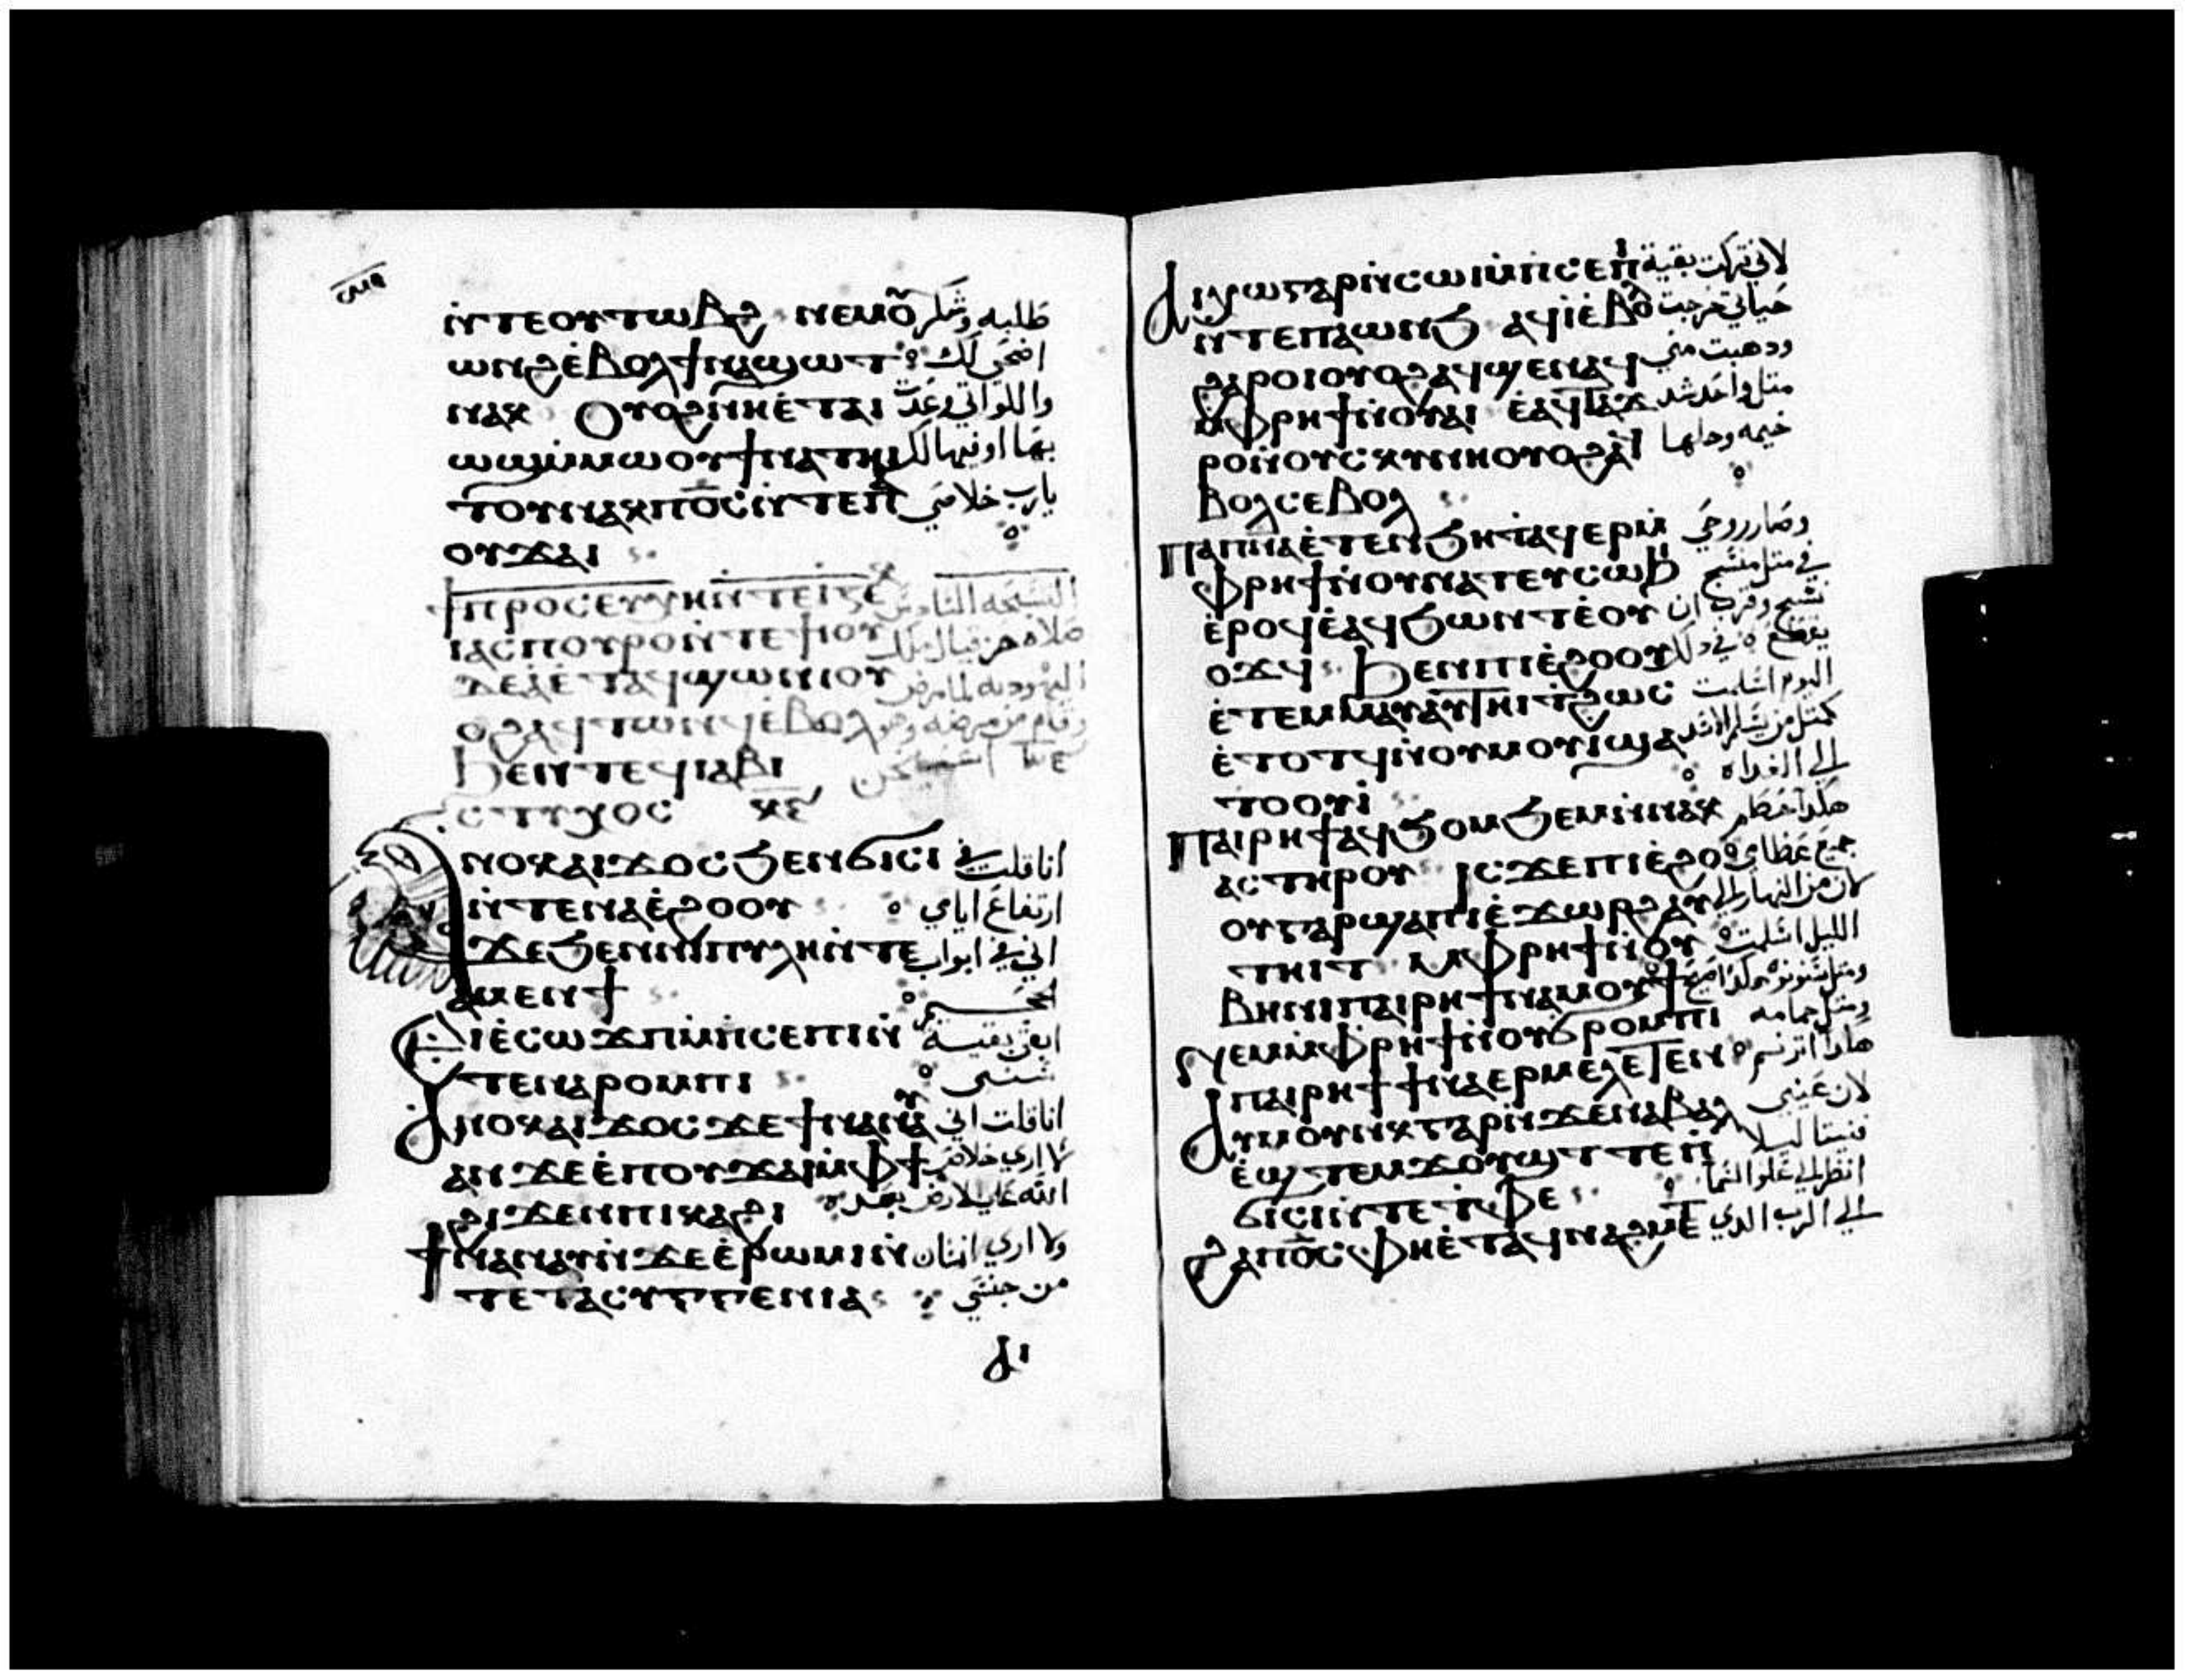 ⲛ̀ⲧⲉⲟⲩⲧⲱⲃϩ ⲛⲉⲙⲟ̄ طلبه وشكر
ⲱⲛϩⲉ̀ⲃⲟⲗϯⲛⲁϣⲱⲧ اضحي لك
ⲛⲁⲕ Ⲟⲩⲟϩⲛ̀ⲏⲉ̀ⲧⲁⲓ واللواتي وعدت
ⲱϣⲙ̀ⲙⲱⲟⲩϯⲛⲁⲧⲏⲓ بها اوفيها لك
ⲧⲟⲩⲛⲁⲕⲡⲟ̅ⲥ̅ⲛ̀ⲧⲉⲡ يارب خلاصي
ⲟⲩϫⲁⲓ
ϯⲡⲣⲟⲥⲉⲩⲭⲏⲛ̀ⲧⲉ
ⲓⲁⲥⲡⲟⲩⲣⲟⲛ̀ⲧⲉϯⲓⲟⲩ صلاة حزقيال ملك
ⲇⲉⲁⲉ̀ⲧⲁϥϣⲱⲛⲓⲟⲩ اليهوديه لما مرض
ⲟϩⲁϥⲧⲱⲛϥⲉ̀ⲃⲟⲗ وقام من مرضه
ϧⲉⲛⲡⲉϥⲓⲁⲃⲓ
ⲥⲧⲩⲭⲟⲥ
ⲁⲛⲟⲕⲁⲓϫⲟⲥϧⲉⲛϭⲓⲥⲓ انا قلت في
ⲛ̀ⲧⲉⲛⲁⲉ̀ϩⲟⲟⲩ ارتفاع ايامي
ϫⲉϧⲉⲛⲛⲓⲡⲩⲗⲏⲛ̀ⲧⲉ اني في ابواب
ⲁⲙⲉⲛϯ الجحيم
Ⲉⲓⲉ̀ⲥⲱϫⲡⲙ̀ⲡ̀ⲥⲉⲡⲓⲛ̀ ابقي بقيسة
ⲧⲉⲛⲁⲣⲟⲙⲡⲓ سني
Ⲁⲛⲟⲕⲁⲓϫⲟⲥϫⲉϯⲛⲁⲛⲁⲩ انا قلت اني
ⲁⲛϫⲉⲉ̀ⲡⲟⲩϫⲁⲓⲙ̀ⲫϯ لا اري خلاص
ϩⲓϫⲉⲛⲡⲓⲕⲁϩⲓ الله علي الارض بعد
ϯⲛⲁⲛⲁⲩⲛ̀ϫⲉⲉ̀ⲣⲱⲙⲓⲛ̀ ولا اري انسان
ⲧⲉⲧⲁⲥⲩⲅⲅⲉⲛⲓⲁ من جنسي
ⲁⲓ
Ⲁⲓⲭⲱⲅⲁⲣⲛ̀ⲥⲱⲓⲙ̀ⲡ̀ⲥⲉⲡⲓ لاني تركت بقية
ⲛ̀ⲧⲉⲡⲁⲱⲛϧ ⲁϥⲓ̀ⲉ̀ⲃⲟⲗ حياتي خرجت
ϩⲁⲣⲟⲓⲟⲩⲟϩⲁϥϣⲉⲛⲁϥ ودهبت مني
ⲙ̀ⲫⲣⲏϯⲛ̀ⲟⲩⲁⲓ ⲉ̀ⲁϥⲧⲁϫ متل واحد شد
ⲣⲟⲛ̀ⲟⲩⲥⲕⲩⲛⲏⲟⲩⲟϩⲁϥ خيمه وحلها
ⲃⲟⲗⲥⲉⲃⲟⲗ
Ⲡⲁⲡ̅ⲛ̅ⲁ̅ⲉ̀ⲧⲉⲛϧⲏⲧⲁϥⲉⲣⲙ̀ وصار روحي
ⲫⲣⲏϯⲛ̀ⲟⲩⲛⲁⲧⲉⲩⲥⲱϧⲓ في متل منسج
ⲉ̀ⲣⲟϥⲉ̀ⲁϥϧⲱⲛⲧⲉ̀ⲟⲩ نسج وقرب ان
ⲟϫϥ Ϧⲉⲛⲡⲓⲉ̀ϩⲟⲟⲩ يقطع في دلك
ⲉ̀ⲧⲉⲙⲙⲁⲩⲁⲩⲧⲏⲓⲧϩⲱⲥ اليوم اسلمت
ⲉ̀ⲧⲟⲧϥⲛ̀ⲟⲩⲙⲟⲩⲓϣⲁ كمتل من يسلم للاسد
ⲧⲟⲟⲩⲓ̀ الي الغداه
Ⲡⲁⲓⲣⲏϯⲁϥϧⲟⲙϧⲉⲙⲛ̀ⲛⲁⲕ هكدا حطم
ⲁⲥⲧⲏⲣⲟⲩ ⲓⲥϫⲉⲡⲓⲉ̀ϩⲟ جميع عظامي
ⲟⲩⲅⲁⲣϣⲁⲡⲓⲉ̀ϫⲱⲣϩⲁⲩ لان من النهار الي
ⲧⲏⲓⲧ ⲙ̀ⲫⲣⲏϯⲛ̀ⲟⲩ الليل اسلمت
ⲃⲏⲛⲓⲡⲁⲓⲣⲏϯⲛⲁⲙⲟⲩϯ
ⲛⲉⲙⲙ̀ⲫⲣⲏϯⲛ̀ⲟⲩϭⲣⲟⲙⲡⲓ ومتل حمامه
ⲡⲁⲓⲣⲏϯϯⲛⲁⲉⲣⲙⲉⲗⲉⲧⲉⲓⲛ هكدا اترنم
Ⲁⲩⲙⲟⲩⲛⲕⲅⲁⲣⲛ̀ϫⲉⲛⲁⲃⲁⲗ لان عيني
ⲉ̀ϣⲧⲉⲙϫⲟⲩϣⲧⲧⲉⲡ فنيتا ليلا
ϭⲓⲥⲓⲛ̀ⲧⲉⲧ̀ⲫⲉ انظر الي علو السما
ϩⲁⲡⲟ̅ⲥ̅ⲫⲏⲉ̀ⲧⲁϥⲛⲁϩⲙⲉⲧ الي الرب الدي